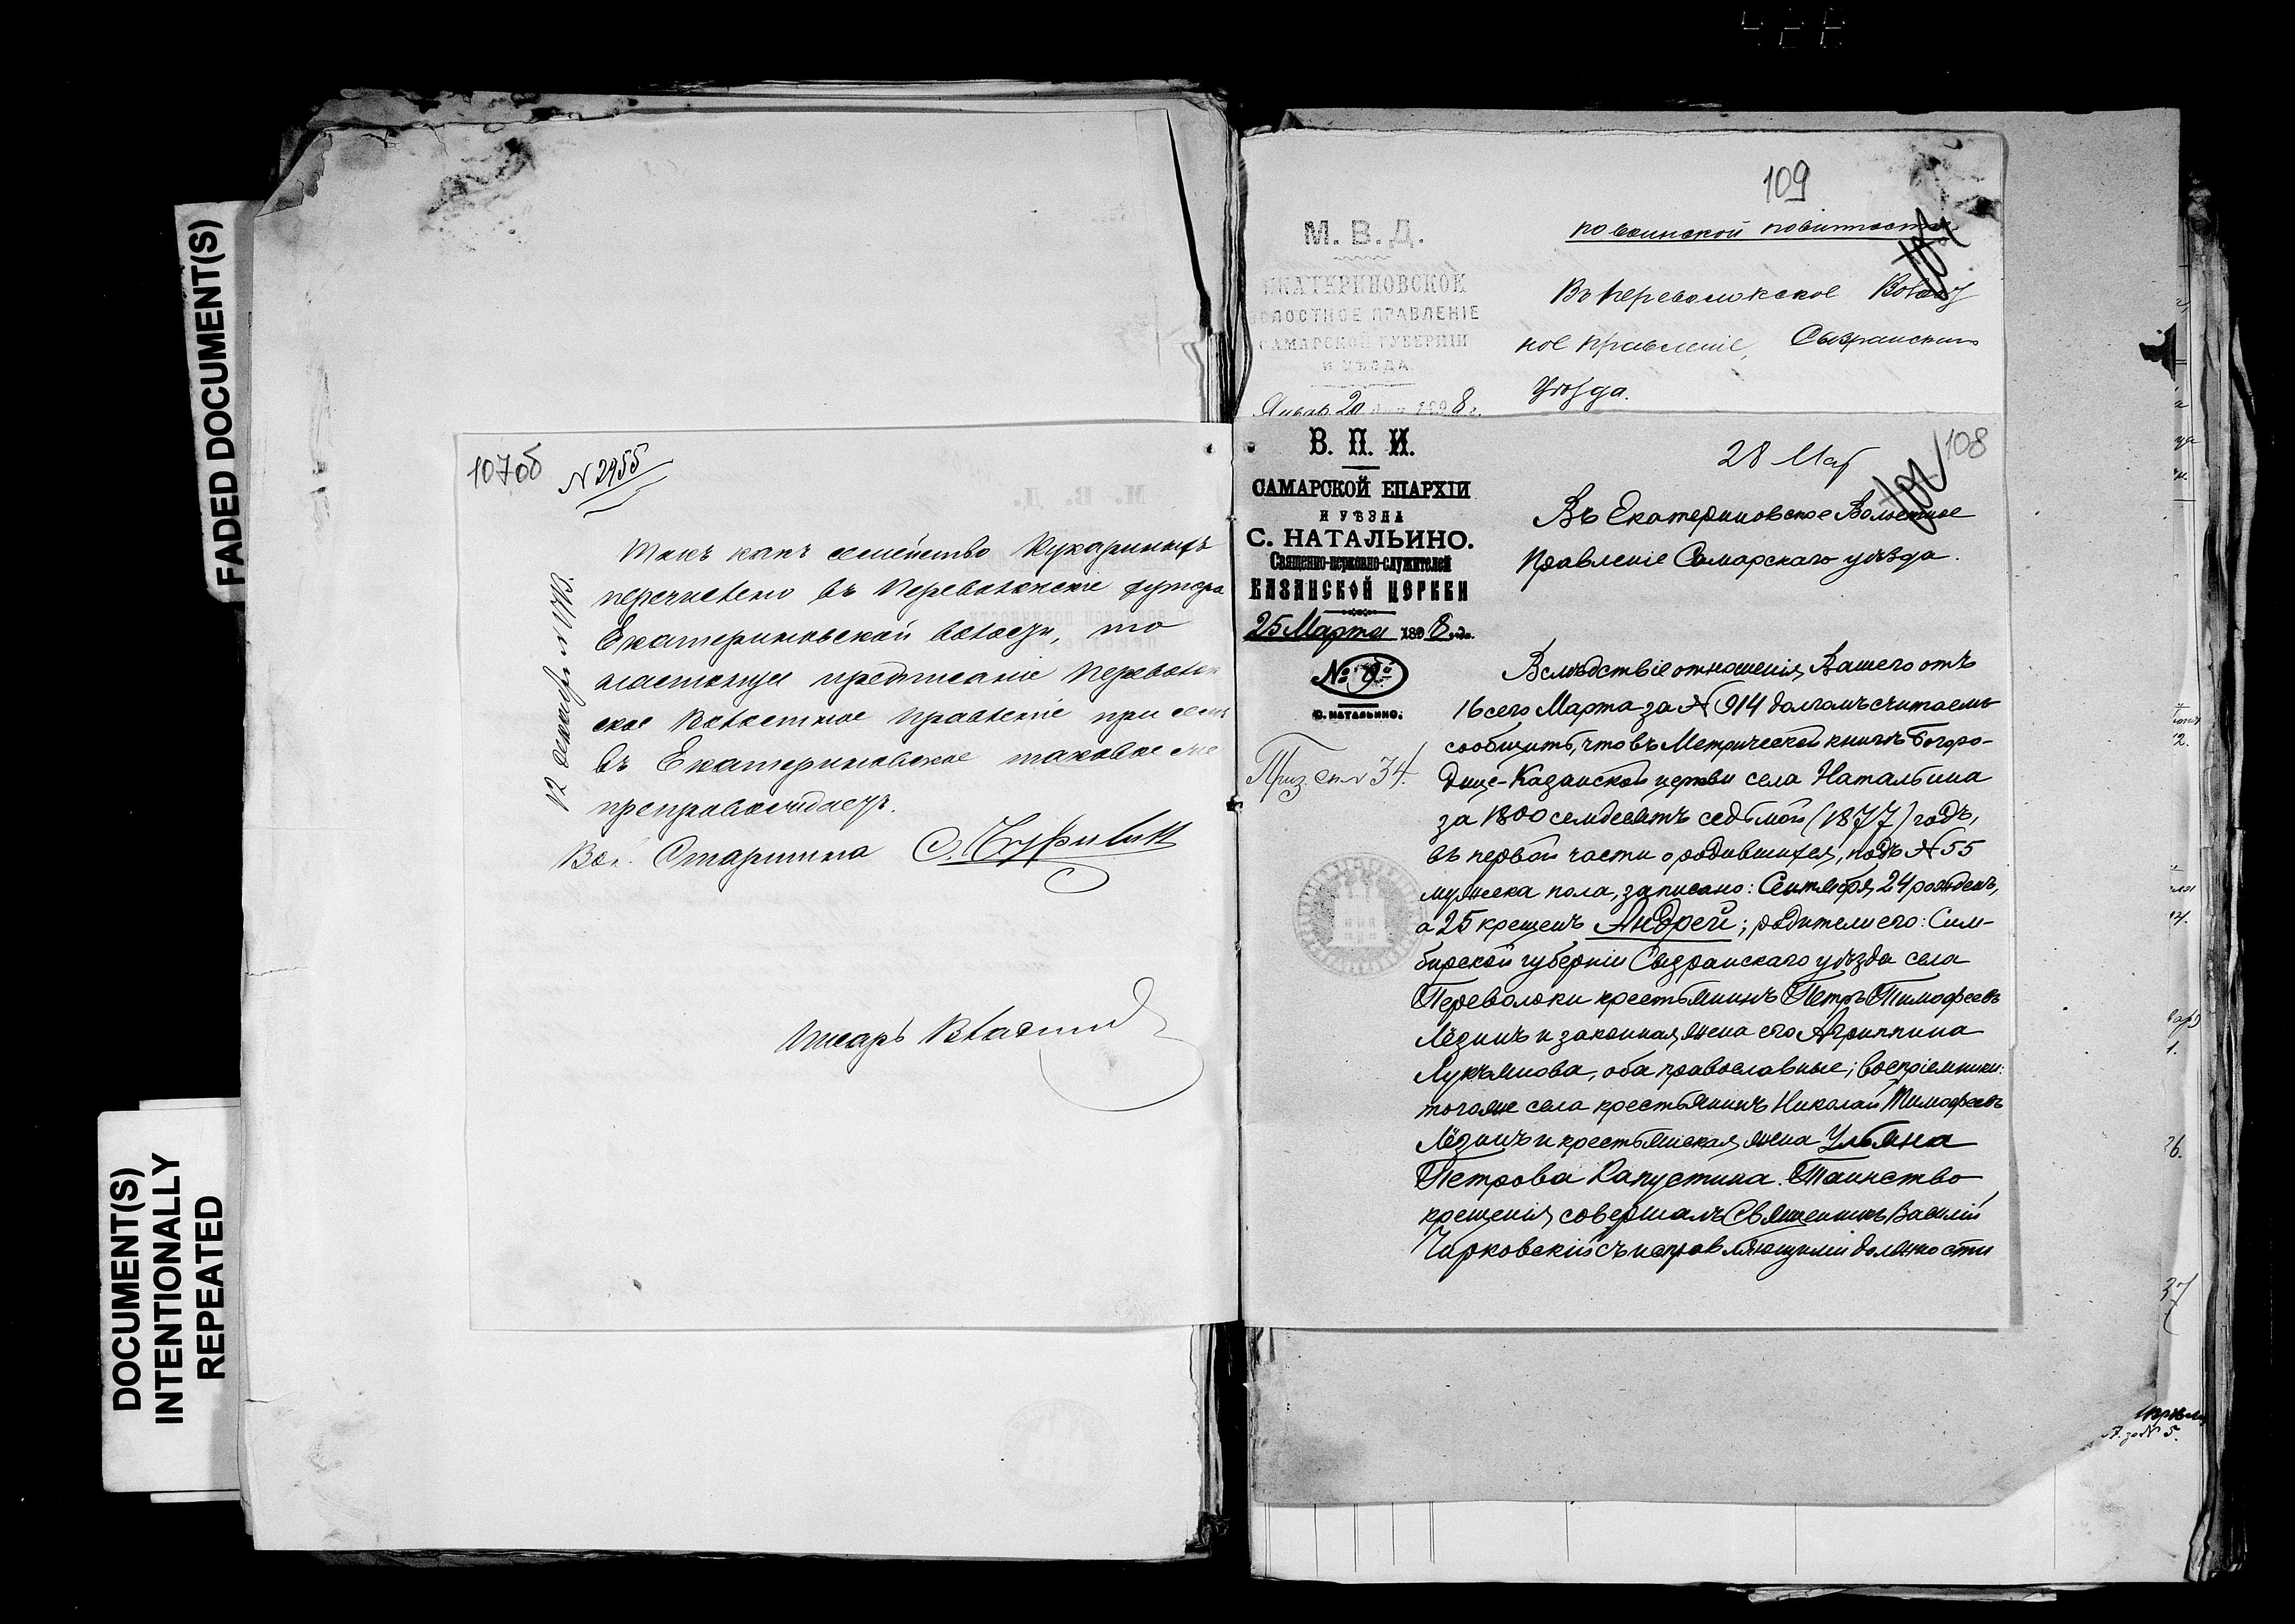 FADED DOCUMENT(S)
DOCUMENT(S)
INTENTIONALLY
REPEATED
107об
N 2955
Такъ какъ семейство Кукариныхъ
перечислено въ Переволокскіе хутора
Екатериновской волости, то
настоящее предписаніе Переволок
ское Волостное Правленіе при семъ
въ Екатериновское таковое же
препровождаетъ.
Вол. Старшина
Писарь
109
по воинской повинности
М. В. Д.
ЕКАТЕРИНОВСКОЕ
ВОЛОСТНОЕ ПРАВЛЕНІЕ
САМАРСКОЙ ГУБЕРНІИ
И УѢЗДА.
Январ 20 дня 1898 г.
Въ Переволокское Волост
ное Правленіе, Сызранскаго
Уѣзда.
В. П. И.
САМАРСКОЙ ЕПАРХІИ
И УѢЗДА
С. НАТАЛЬИНО.
Священно-церковно-служителей
КАЗАНСКОЙ ЦЕРКВИ
25 Марта 1898 года.
№ 9й
С. НАТАЛЬИНО.
Приз. сп. № 34.
28 Мар
108
Въ Екатериновское Волостное
Правленіе Самарскаго уѣзда.
Вслѣдствіе отношенія Вашего отъ
16 сего Марта за № 914 долгомъ считаемъ
сообщить, что въ Метрической книгѣ Богоро-
дице-Казанской церкви села Натальина
за 1800 семдесятъ седьмой (1877) годъ,
въ первой части о родившихся, подъ № 55
мужска пола, записано: Сентября 24 рожденъ,
а 25 крещенъ Андрей; родители его: Сим-
бирской губерніи Сызранскаго уѣзда села
Переволоки крестьянинъ Петръ Тимофеевъ
Лёзинъ и законная жена его Агриппина
Лукъянова, оба православные; воспріемники:
тогоже села крестьянинъ Николай Тимофеевъ
Лёзинъ и крестьянская жена Ульяна
Петрова Капустина. Таинство
крещенія совершалъ Священникъ Василій
Чирковскій съ исправляющимъ должности